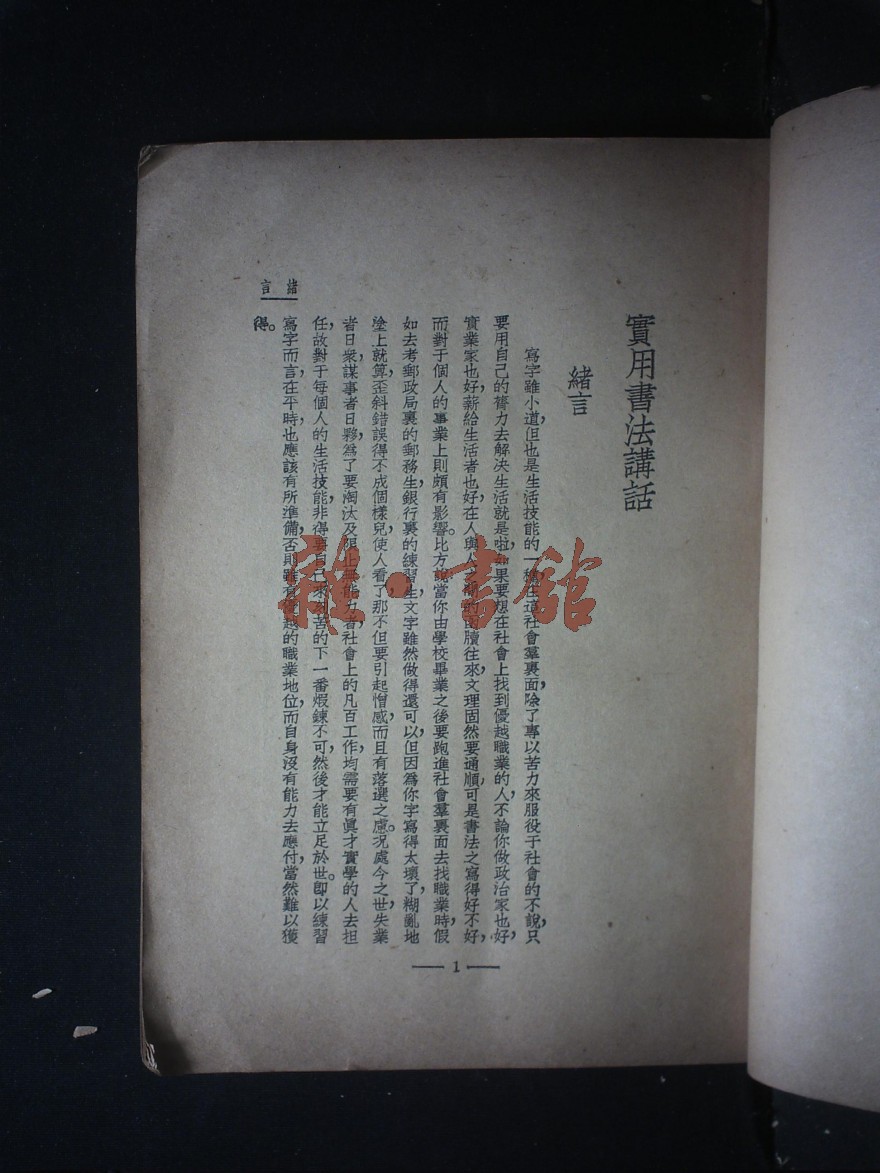 實用書法講話
緒言
寫字雖小道，但也是生活技能的一種，生這社會羣裏面，除了專以苦力來服役于社會的不說，只
要用自己的膂力去解决生活就是啦，如果要想在社會上找到優越職業的人，不論你做政治家也好，
實業家也好，薪給生活者也好，在人與人之間的函牘往來，文理固然要通順，可是書法之寫得好不好，
而對于個人的事業上則頗有影響。比方說當你由學校畢業之後，要跑進社會羣裏面去找職業時，假
如去考郵政局裏的郵務生，銀行裏的練習生，文字雖然做得還可以，但因爲你字寫得太壞了，糊亂地
塗上就算，歪斜錯誤得不成個樣兒，使人看了，那不但要引起憎感，而且有落選之慮。况處今之世，失業
者日衆，謀事者日夥，爲了要淘汰及限止無能力者，社會上的凡百工作，均需要有眞才實學的人去担
任，故對于每個人的生活技能，非得要自己來刻苦的下一番煆鍊不可，然後才能立足於世。卽以練習
寫字而言，在平時也應該有所準備，否則雖有優越的職業地位，而自身沒有能力去應付，當然難以獲
得。
緒言
1
雜·書館